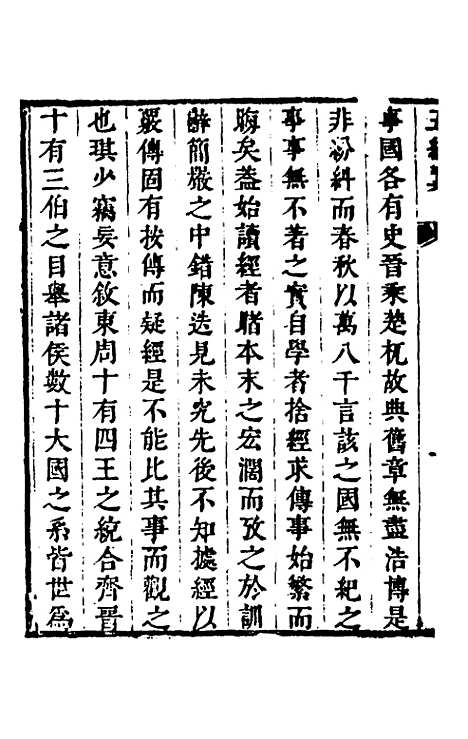 事國各有史晉乘楚杌故典舊章無盡浩博是
非紛糾而春秋以萬八千言該之國無不紀之
事事無不著之實自學者捨經求傳事始繁而
晦矣葢始讀經者賭本末之宏濶而攷之於訓
辭簡嚴之中錯陳迭見未究先後不知據經以
覈傳固有按傳而疑經是不能比其事而觀之
也琪少竊妄意敘東周十有四王之統合齊晉
十有三伯之目舉諸侯數十大國之系皆世爲